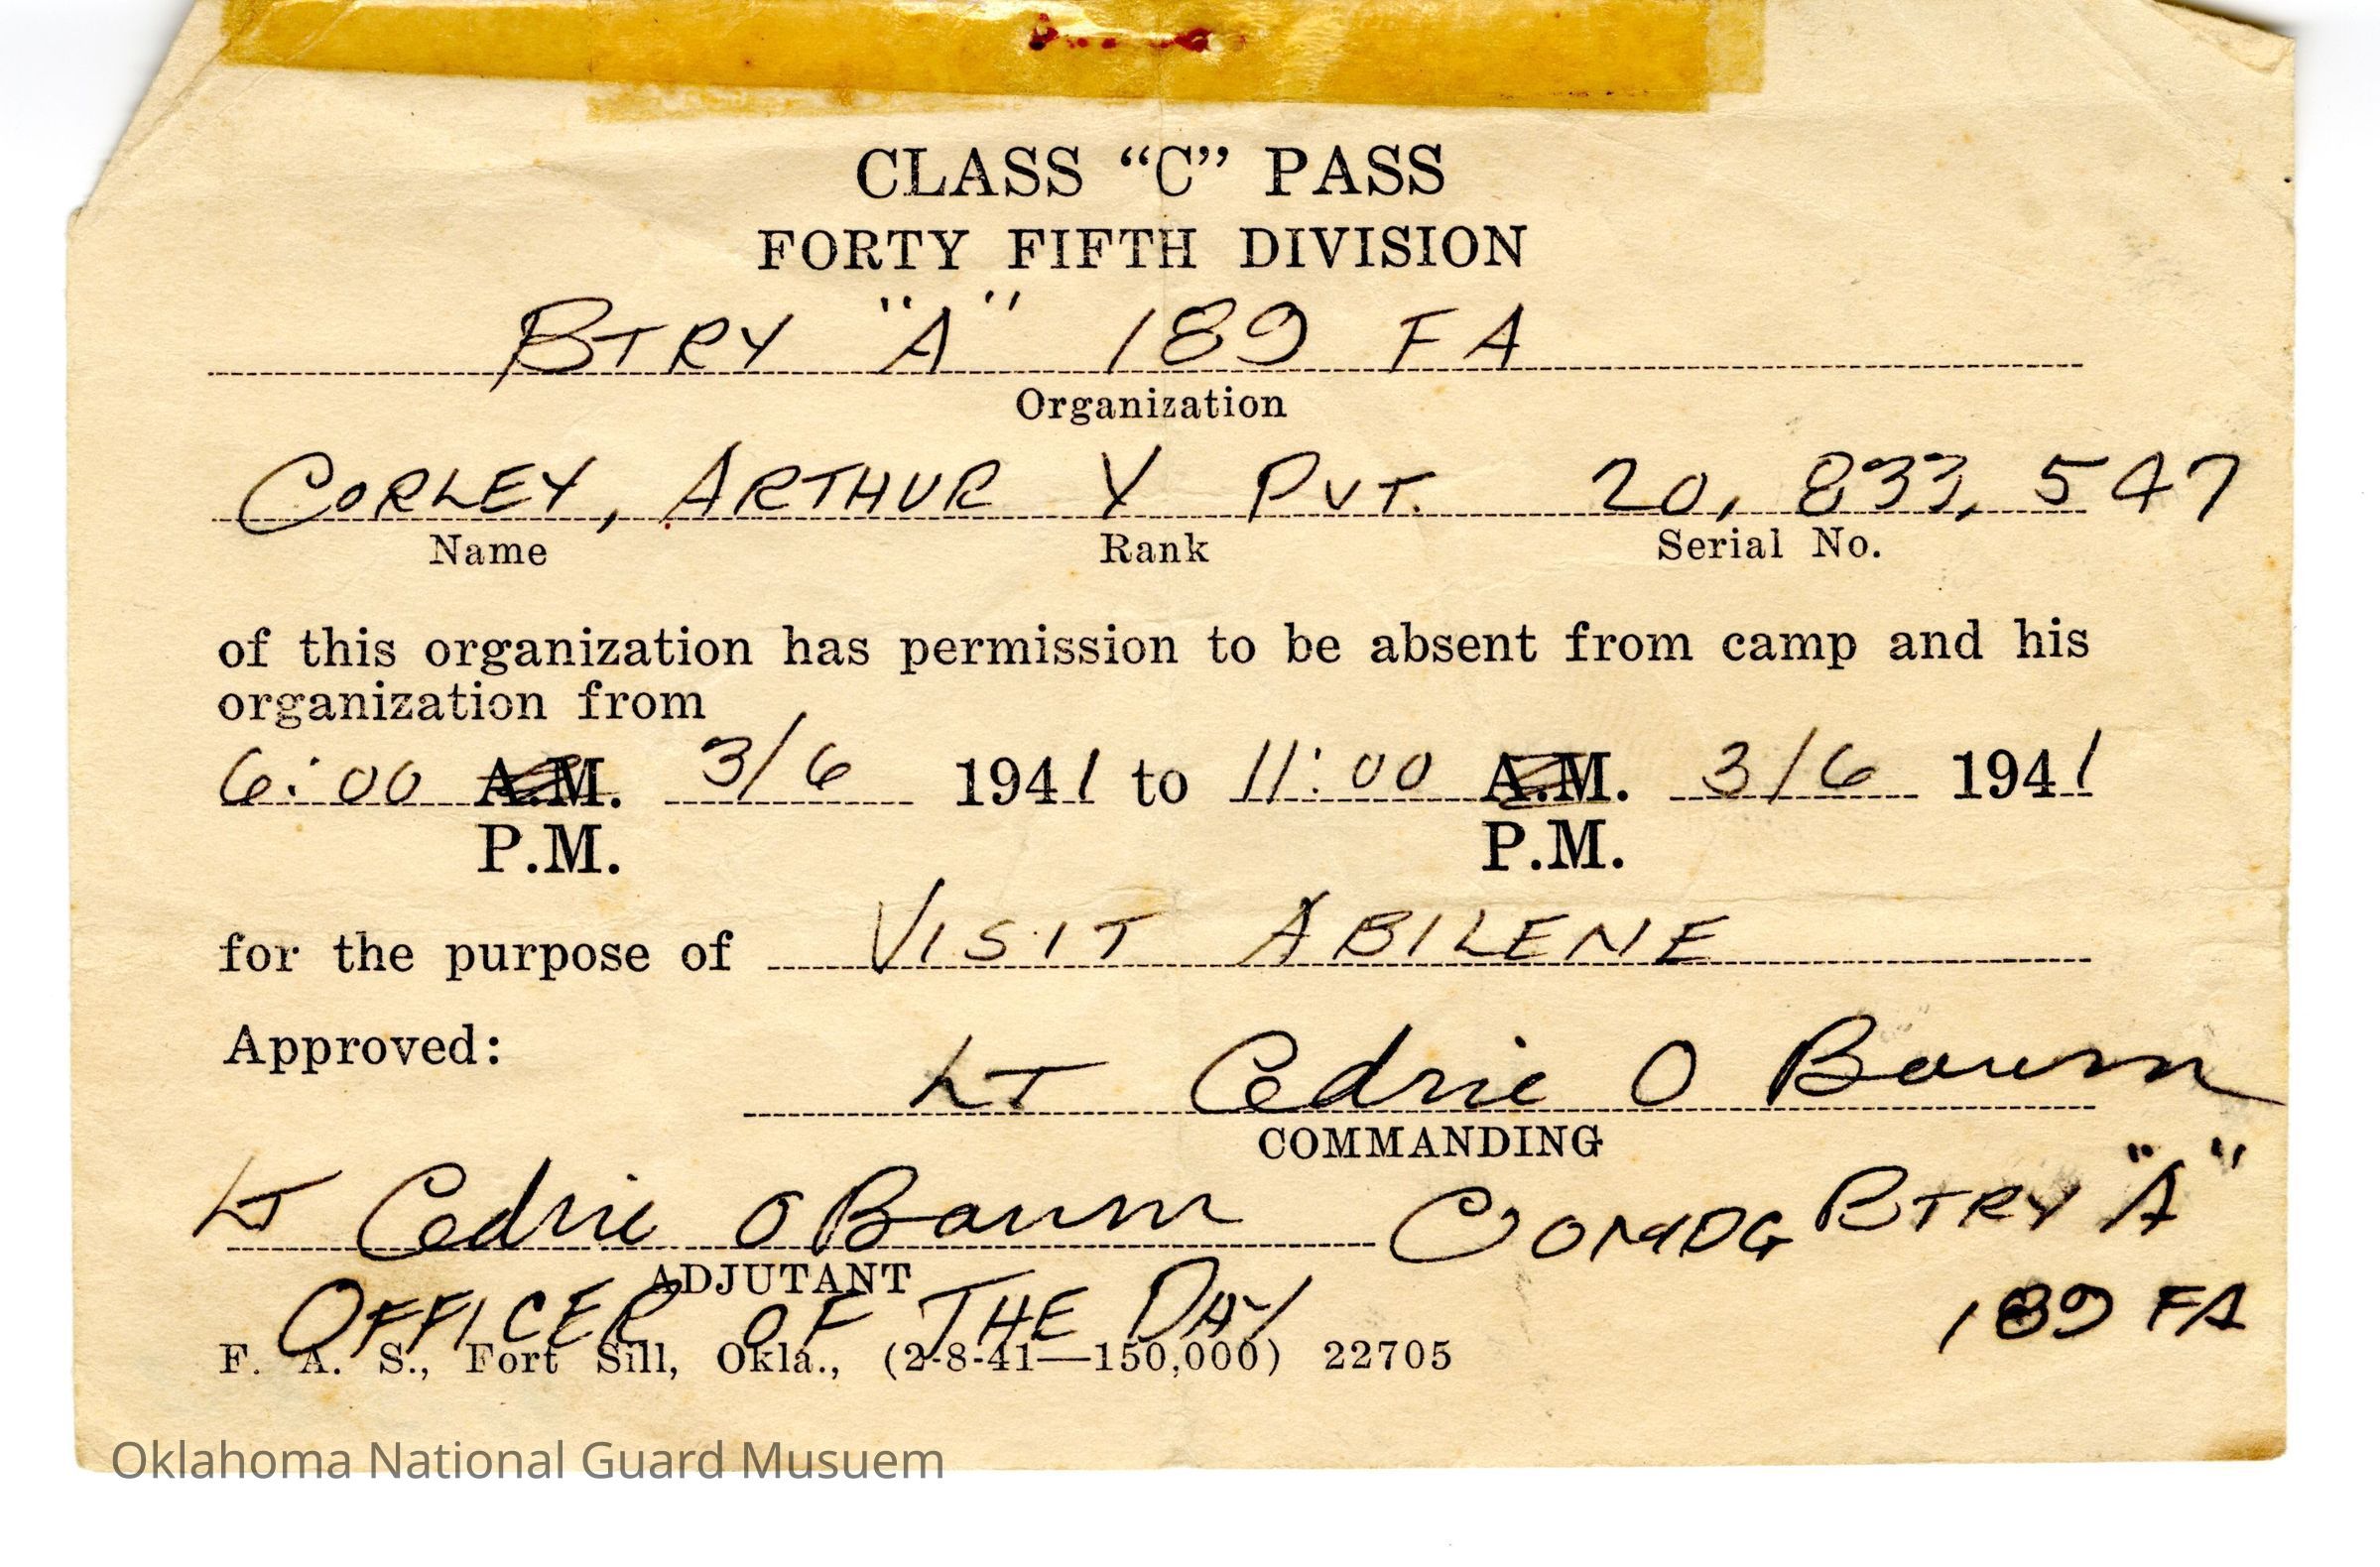 CLASS “C” PASS
FORTY FIFTH DIVISION
BTRY "A" 189 FA
Organization
CORLEY, ARTHUR Y PVT. 20,833,547
Name Rank Serial No.
of this organization has permission to be absent from camp and his
organization from
6:00 A.M. 3/6 1941 to 11:00 A.M. 3/6 1941
P.M. P.M.
for the purpose of VISIT ABILENE
Approved:
LT Cedric O Baum
COMMANDING
LT Cedric O Baum COMDG BTRY "A"
ADJUTANT
OFFICER OF THE DAY 189 FA
F. A. S., Fort Sill, Okla., (2-8-41—150,000) 22705
Oklahoma National Guard Musuem